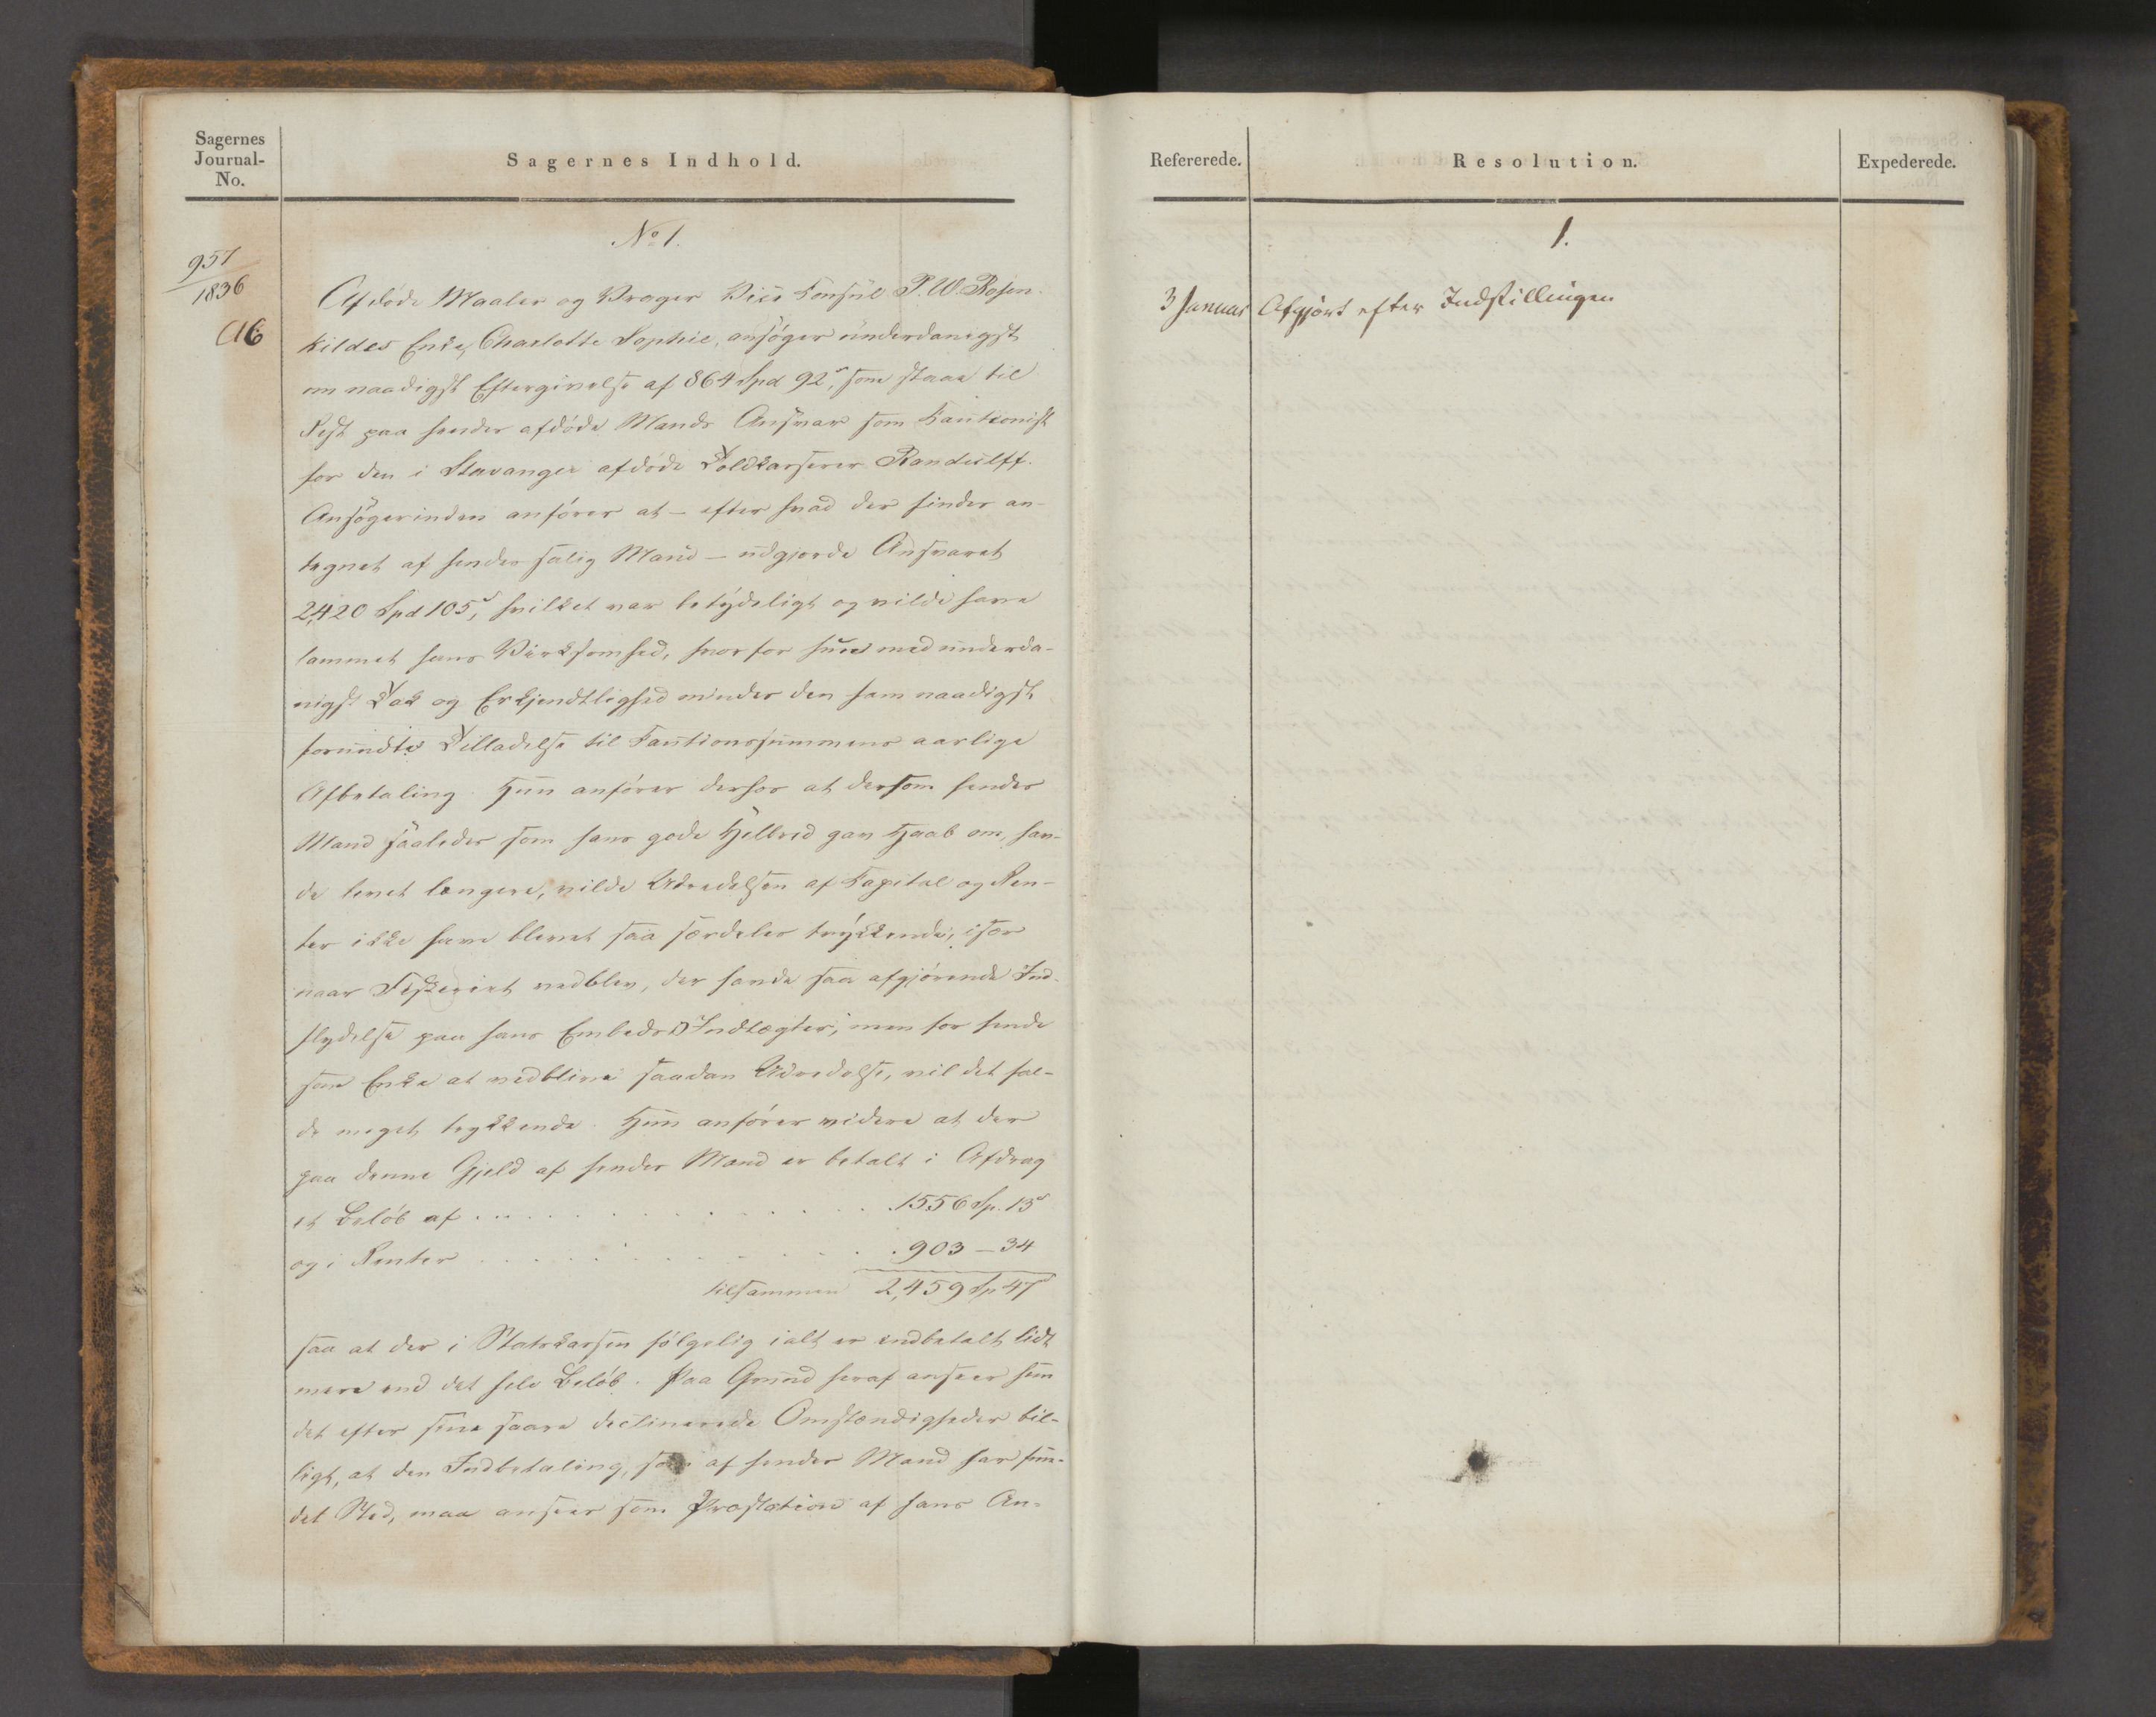 Sagernes
Journal-
No.
Sagernes Indhold.
No 1.
957
1836
C16
Afdöde Maaler og Vrager Vice Konsul P. W. Rosen-
kildes Enke, Charlotte Sophie, ansöger underdanigst
om naadigst Eftergivelse af 864 Spd 92 s, som staae til
Rest paa hendes afdöde Mands Ansvar som Kautionist
for den i Stavanger afdöde Toldkasserer Randulff.
Ansögerinden anförer at – efter hvad der findes an-
tegnet af hendes salig Mand – udgjorde Ansvaret
2,420 Spd 105 s, hvilket var betydeligt og vilde have
lammet hans Virksomhed, hvorfor hun med underda-
nigst Tak og Erkjendtlighed mindes den ham naadigst
forundte Tilladelse til Kautionssummens aarlige
Afbetaling. Hun anförer derhos at dersom hendes
Mand saaledes som hans gode Helbred gav Haab om, hav-
de levet længere, vilde Udredelsen af Kapital og Ren-
ter ikke have blevet saa særdeles trykkende, især
naar Fiskeriet vedblev, der havde saa afgjörende Ind-
flydelse paa hans Embeds Indtægter, men for hende
som Enke at vedblive saadan Udredelse, vil det fal-
de meget trykkende. Hun anförer videre at der
paa denne Gjeld af hendes Mand er betalt i Afdrag
et Belöb af . . . . . . . . . . . 1556 Sp. 13 s
og i Renter . . . . . . . . . . . 903 – 34
tilsammen 2,459 Sp 47 s
saa at der i Statskassen fölgelig ialt er indbetalt lidt
mere end det hele Belöb. Paa Grund heraf anseer hun
det efter sine saare declinerede Omstændigheder bil-
ligt, at den Indbetaling, som af hendes Mand har fun-
det Sted, maa ansees som Præstation af hans An-
Refererede.
Resolution.
Expederede.
1.
3 Januar Afgjort efter Indstillingen